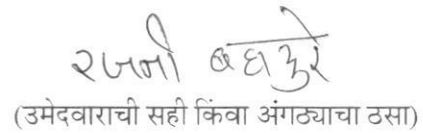 रजनी बधुरे
(उमेदवाराची सही किंवा अंगठ्याचा ठसा)